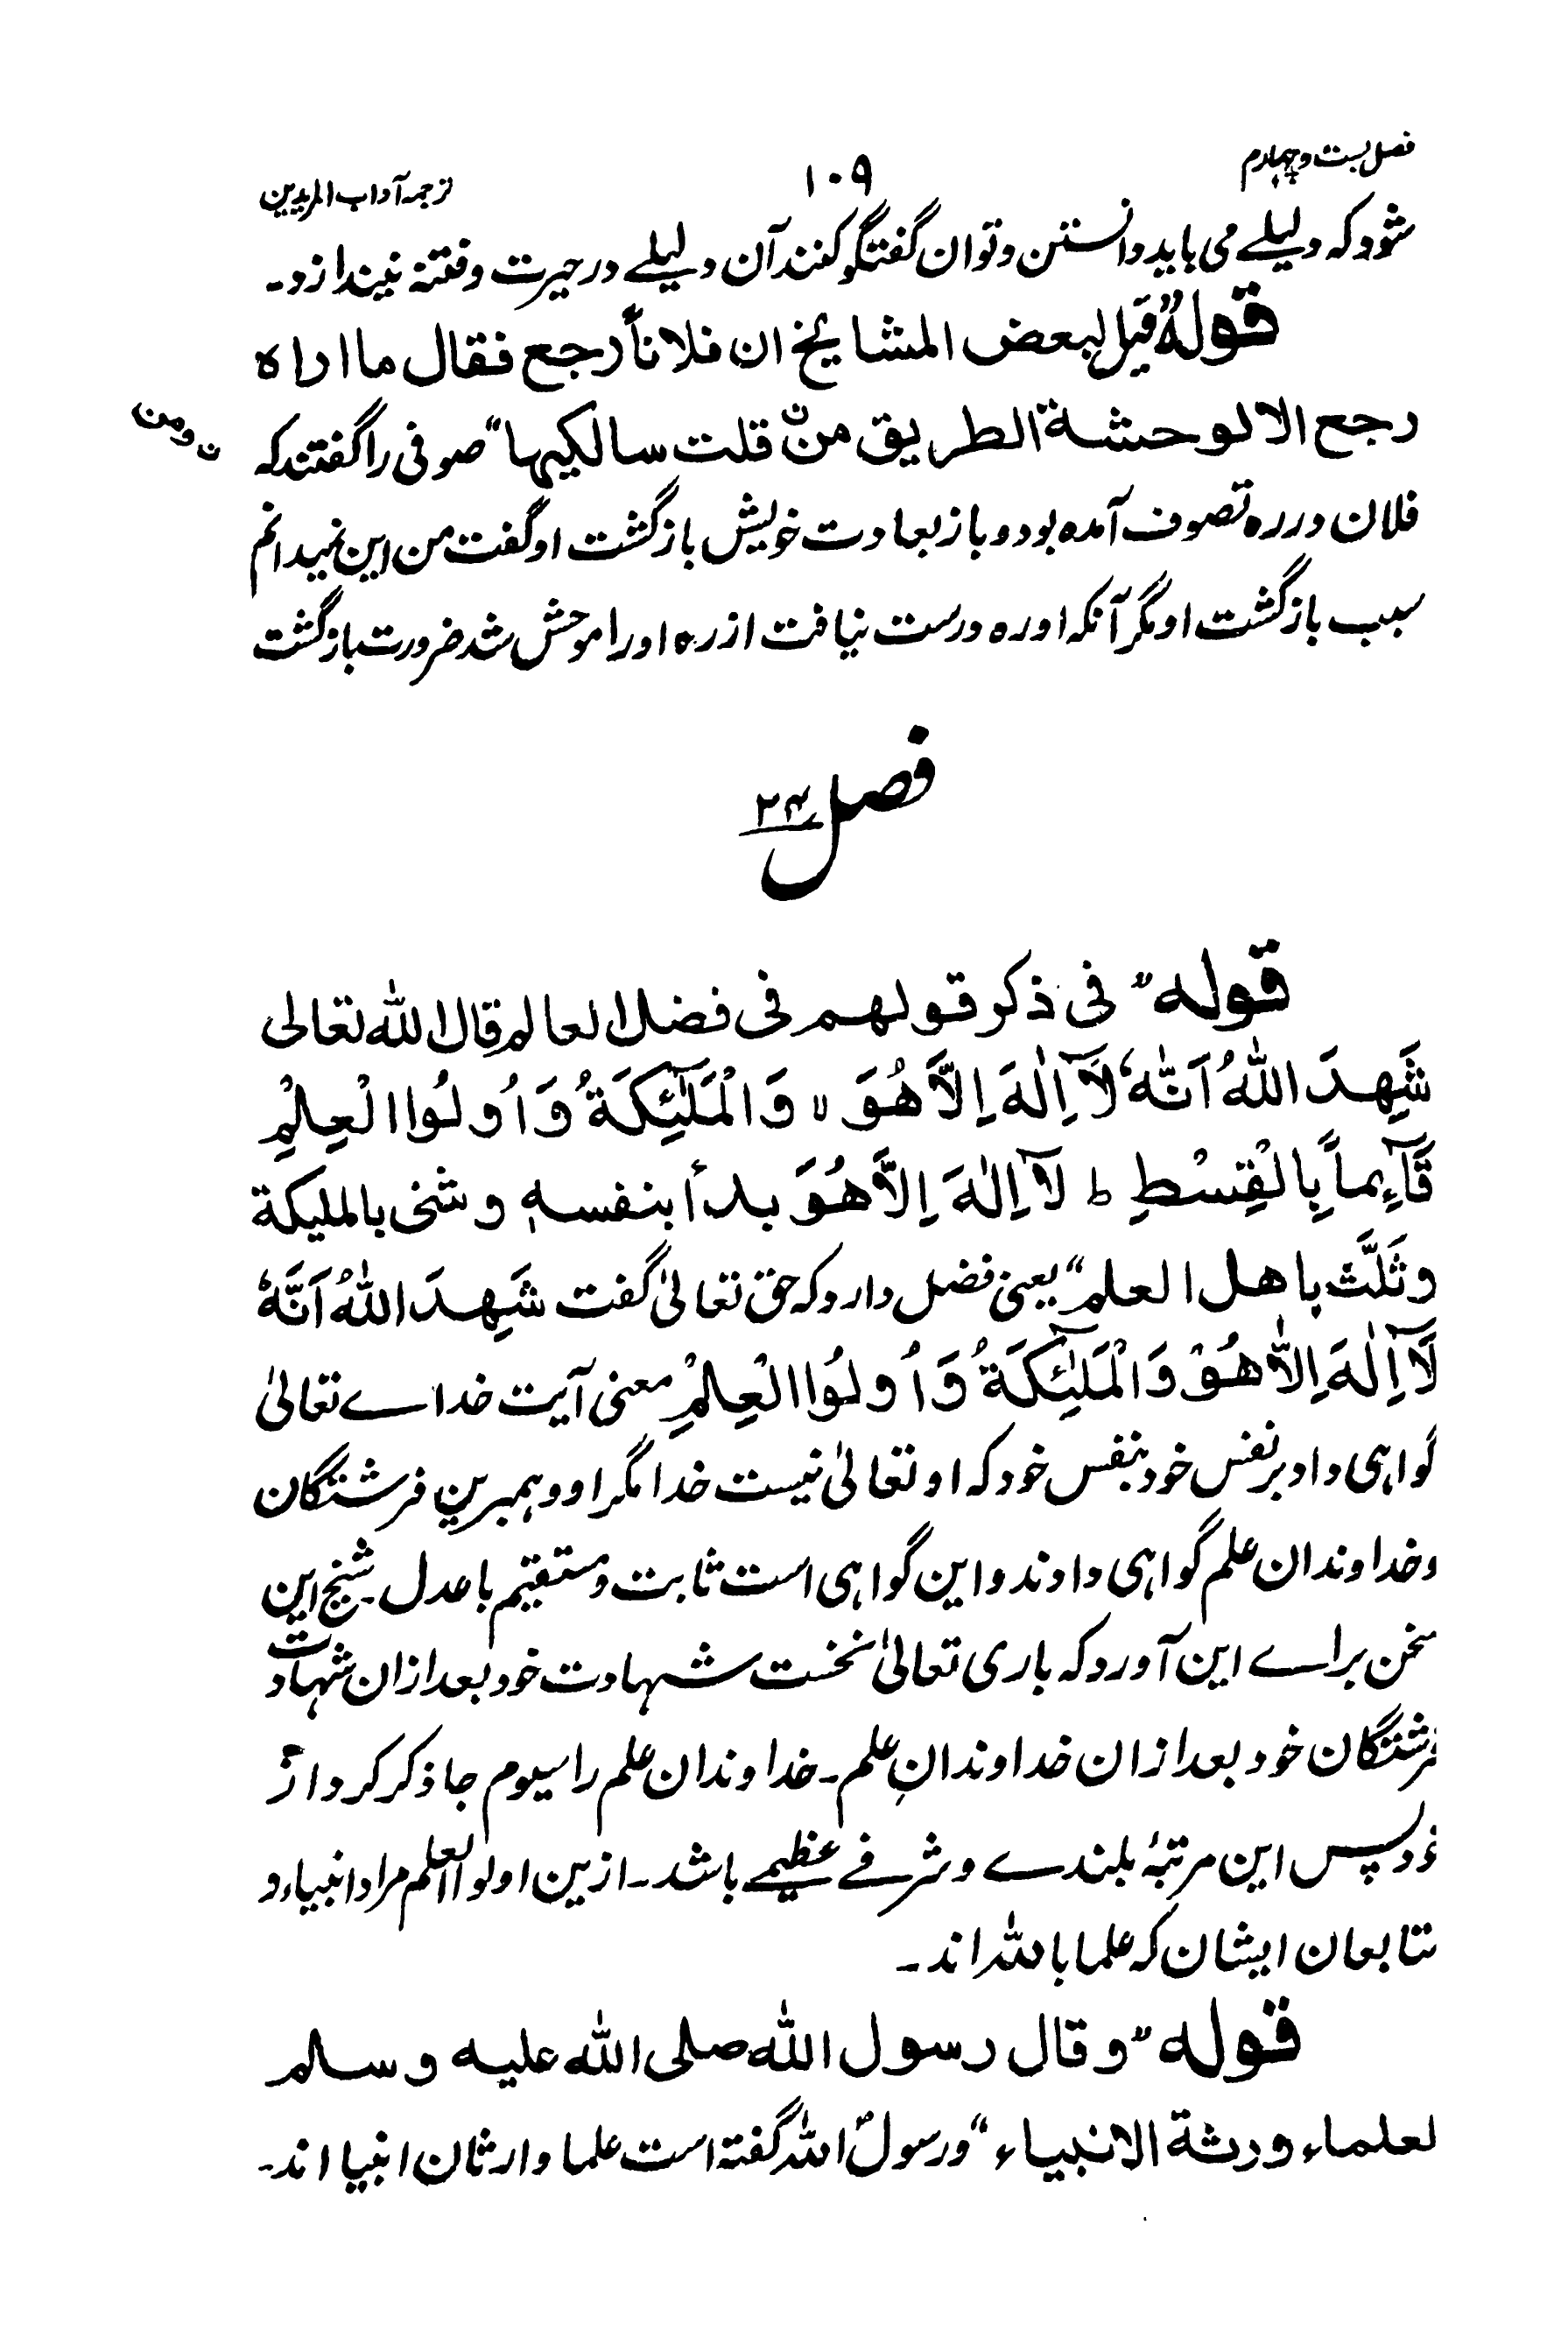 فصل بست و چهارم
۱۰۹
ترجمه آداب المریدین
شود که دلیلے می باید دانستن و توان گفتگو کنند آن دلیلے در حیرت و فتنه نیندازد۔
قوله "قیل لبعض المشایخ ان فلاناً رجع فقال ما اراه
رجع الا لوحشة الطریق منن قلت سالکیها" صوفی را گفتند که
ن ومن
فلان در ره تصوف آمده بود و باز بعادت خویش بازگشت او گفت من این نمیدانم
سبب بازگشت او مگر آنکه او ره درست نیافت از ره او را موحش شد ضرورت بازگشت
فصل ۲۴
قوله "فی ذکر قولهم فی فضل العالم قال الله تعالی
شَهِدَ اللّٰهُ اَنَّهٗ لَآ اِلٰهَ اِلَّا هُوَ ۙ وَالْمَلٰٓئِكَةُ وَ اُولُوا الْعِلْمِ
قَآئِماً بِالْقِسْطِ ط لَآ اِلٰهَ اِلَّا هُوَ بدأ بنفسهٖ و ثنی بالملیکة
و ثَلَّثَ باهل العلم" یعنی فضل دارد که حق تعالیٰ گفت شَهِدَ اللّٰهُ اَنَّهٗ
لَآ اِلٰهَ اِلَّا هُوَ وَالْمَلٰٓئِكَةُ وَ اُولُوا الْعِلْمِ معنی آیت خداے تعالیٰ
گواهی داد بر نفس خود بنفس خود که او تعالیٰ نیست خدا مگر او و همبرین فرشتگان
و خداوندان علم گواهی دادند و این گواهی است ثابت و مستقیم با عدل۔ شیخ این
سخن براے این آورد که باری تعالیٰ نخست شهادت خود بعد ازان شهادت
فرشتگان خود بعد ازان خداوندانِ علم۔ خداوندان علم را سیوم جا ذکر کرد از
خود پس این مرتبهٔ بلندے و شرفے عظیمے باشد۔ ازین اولوا العلم مراد انبیاء و
متابعان ایشان که علما بالله اند۔
قوله "و قال رسول الله صلی الله علیه و سلم
لعلماء ورثة الانبیاء" و رسولؐ الله گفته است علما وارثان انبیا اند۔